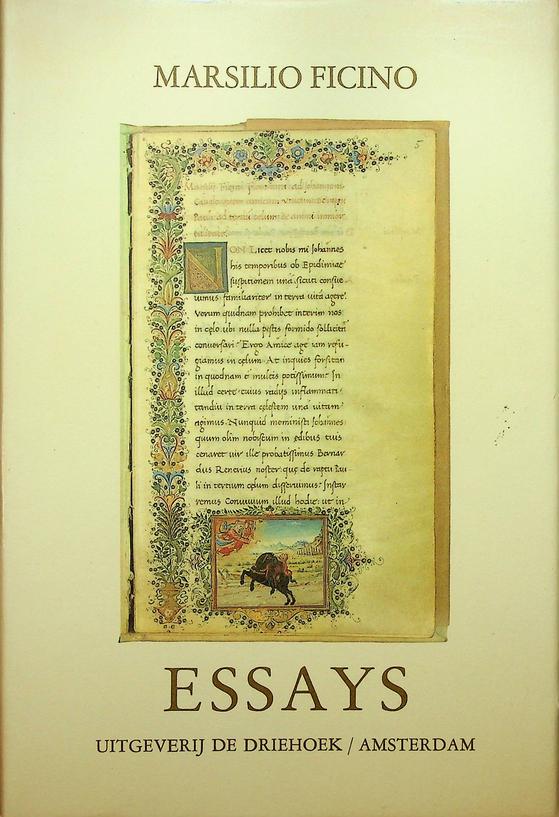 MARSILIO FICINO
5
Marsilii Ficini florentini ad Johannem
NON Licet nobis mi Johannes
his temporibus ob Epidimiae
suspitionem una sicuti consue
uimus familiariter in terra uita agere
Verum quidnam prohibet interim nos
in celo ubi nulla pestis formido solliciti
conuersari? Ergo Amice age iam refu-
giamus in celum. At inquies forsitan
in quodnam e multis potissimum? In
illud certe cuius radijs inflammati
tandiu in terra celestem una uitam
agimus. Nunquid meministi Johannes
quum olim nobiscum in edibus tuis
cenaret uir ille probatissimus Bernar
dus Renerius noster: que de raptu Pau-
li in tertium celum disseruimus? Instau
remus Conuiuium illud hodie: ut in-
ESSAYS
UITGEVERIJ DE DRIEHOEK / AMSTERDAM